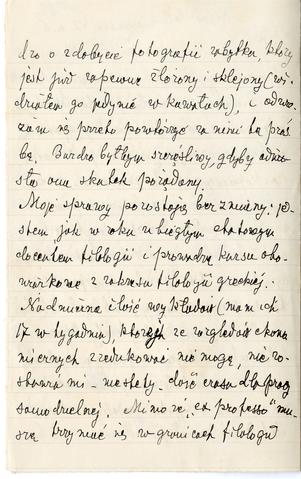 o zdobycie fotografii zabytku, który
jest już zapewne złożony i sklejony (wi-
działem go jedynie w kawałach), i odwa-
żam się przeto powtórzyć za nim tę proś
bę. Bardzo byłbym szczęśliwy, gdyby odnio-
sła ona skutek pożądany.
Moje sprawy pozostają bez zmiany: je-
stem, jak w roku ubiegłym etatowym
docentem filologii i prowadzę kursa obo-
wiązkowe z zakresu filologii greckiej.
Nadmierna ilość wykładów (mam ich
17 w tygodniu), których ze względów ekono
micznych zredukować nie mogę, nie zo-
stawia mi - niestety - dość czasu dla pracy
samodzielnej. Mimo że, "ex professo" mu-
szę trzymać się w granicach filologii